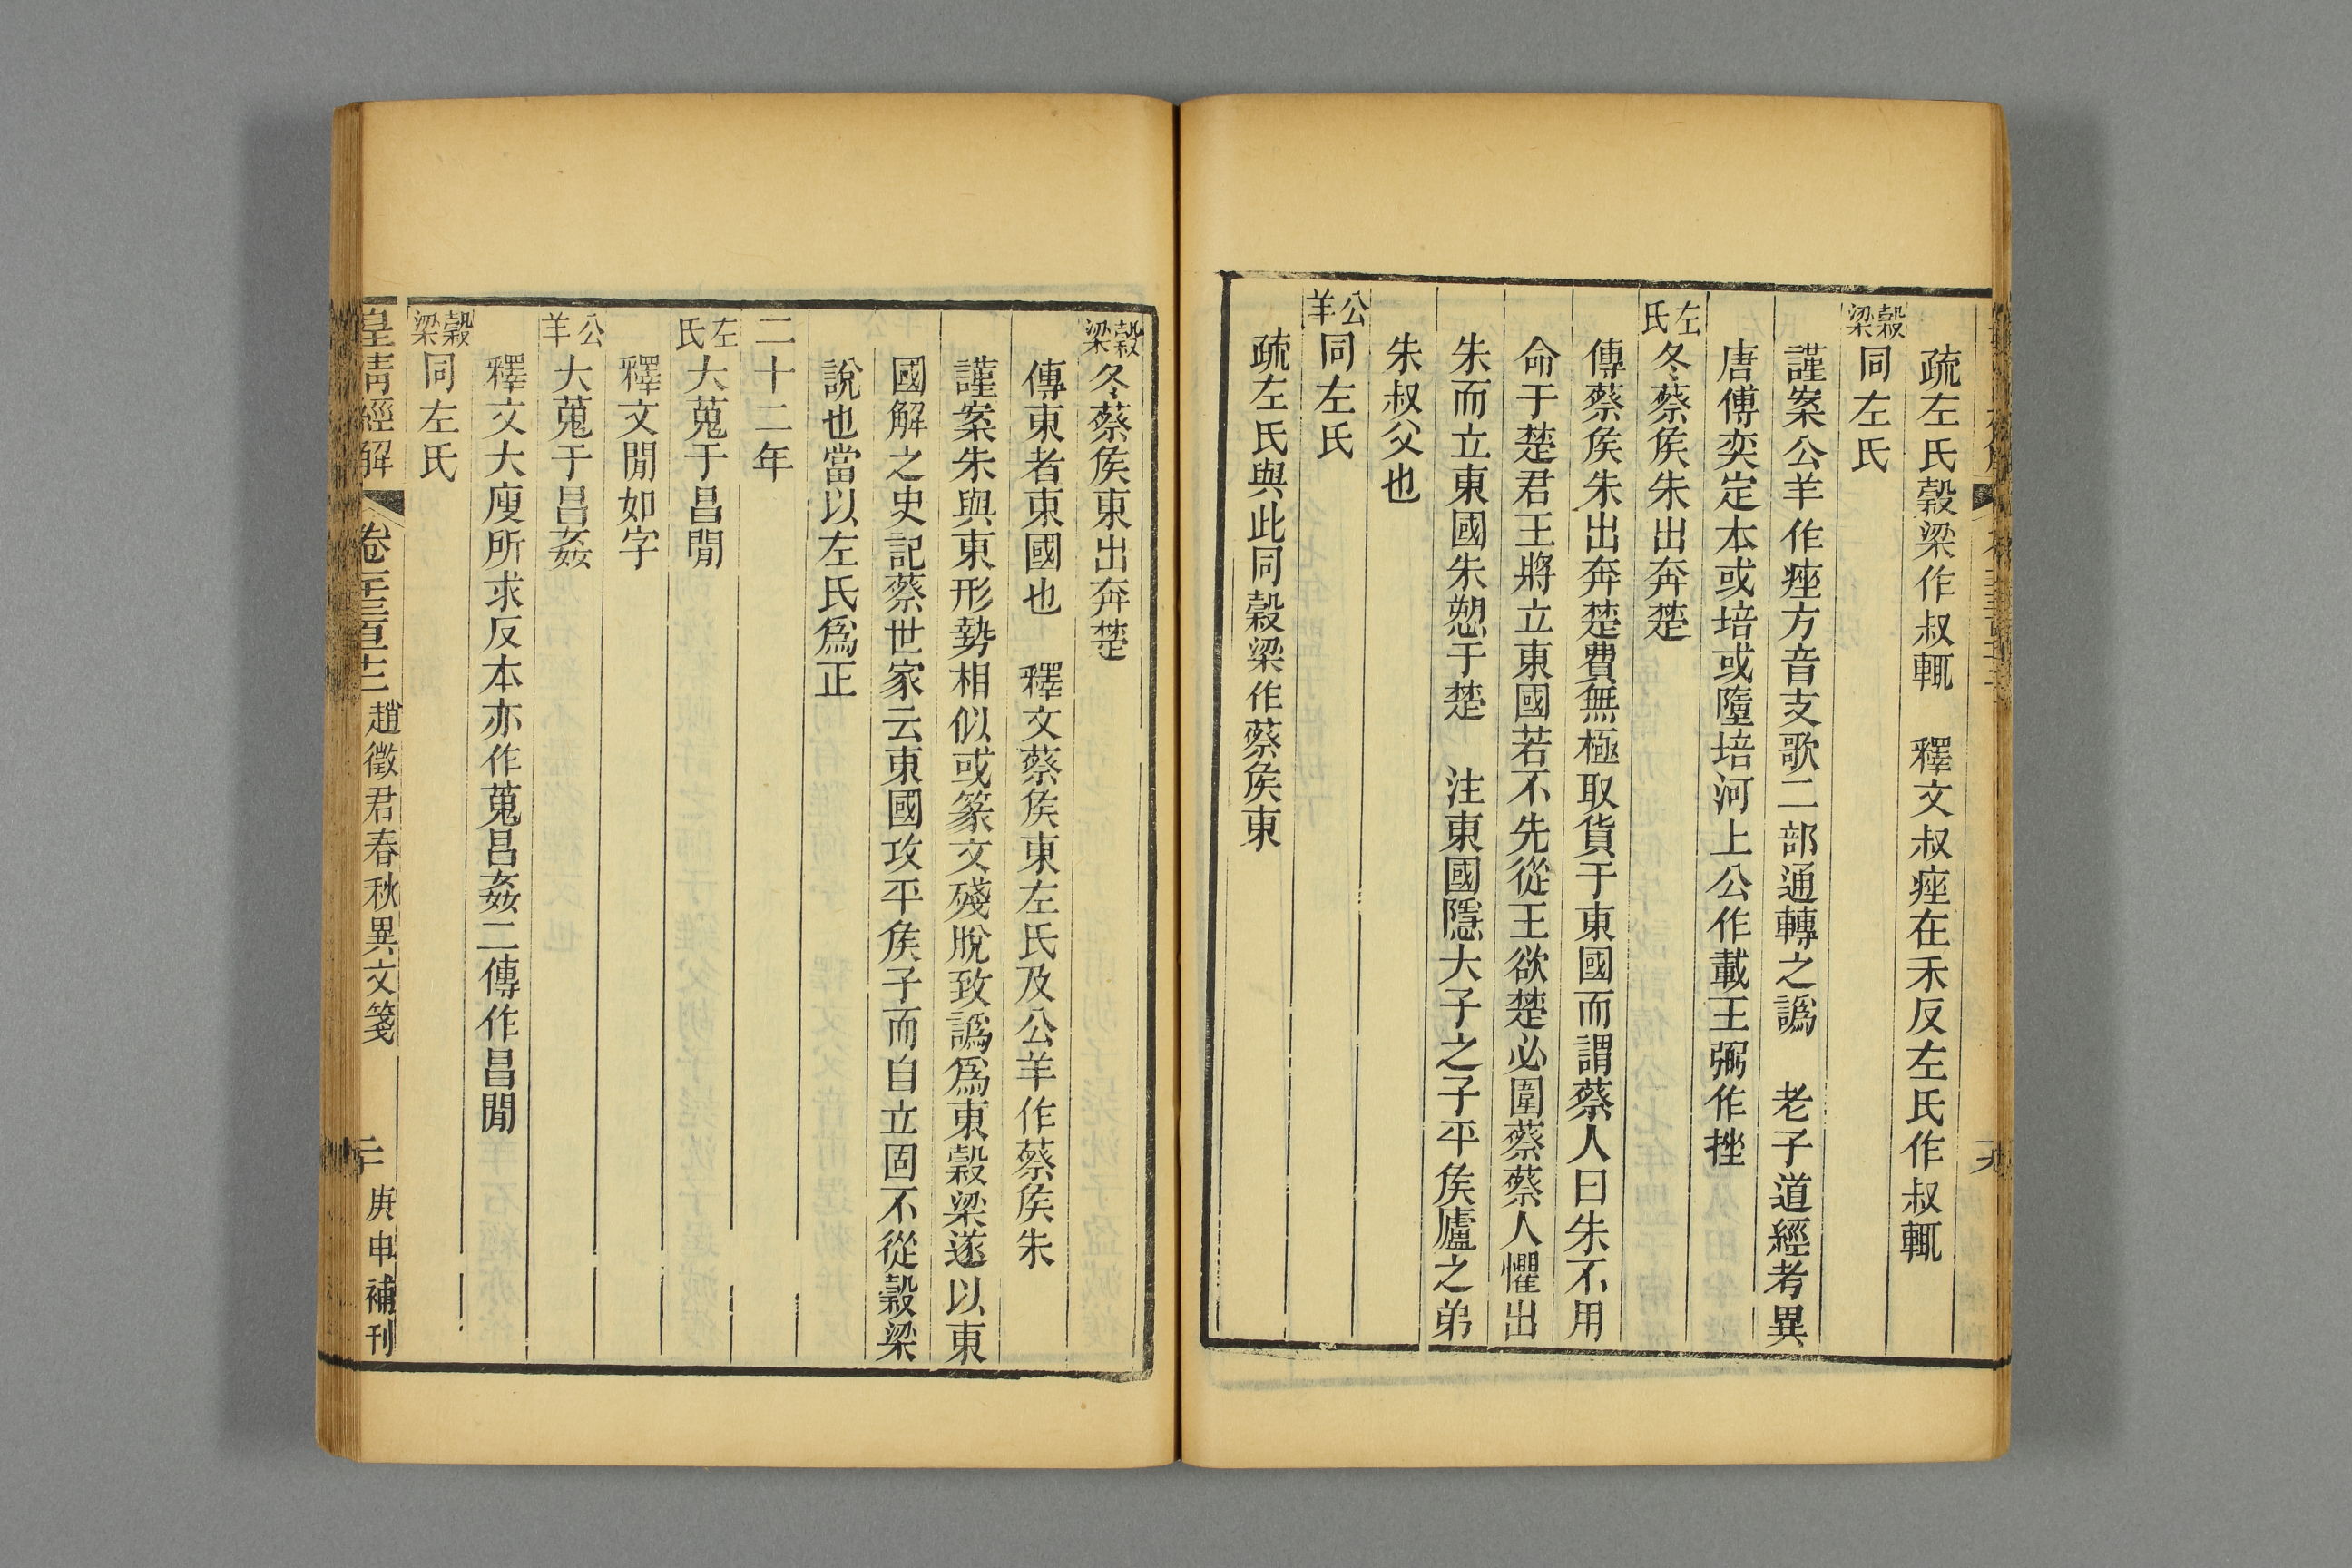 疏左氏穀梁作叔輒　釋文叔痤在禾反左氏作叔輒
穀梁同左氏
謹案公羊作痤方音支歌二部通轉之譌　老子道經考異
唐傅奕定本或培或墮培河上公作載王弼作挫
左氏冬蔡矦朱出奔楚
傳蔡矦朱出奔楚費無極取貨于東國而謂蔡人曰朱不用
命于楚君王將立東國若不先從王欲楚必圍蔡蔡人懼出
朱而立東國朱愬于楚　注東國隱大子之子平矦廬之弟
朱叔父也
公羊同左氏
疏左氏與此同穀梁作蔡矦東
穀梁冬蔡矦東出奔楚
傳東者東國也　釋文蔡矦東左氏及公羊作蔡矦朱
謹案朱與東形勢相似或篆文殘脫致譌爲東穀梁遂以東
國解之史記蔡世家云東國攻平矦子而自立固不從穀梁
說也當以左氏爲正
二十二年
左氏大蒐于昌閒
釋文閒如字
公羊大蒐于昌姦
釋文大廋所求反本亦作蒐昌姦二傳作昌閒
穀梁同左氏
皇清經解　卷　趙徵君春秋異文箋　庚申補刊